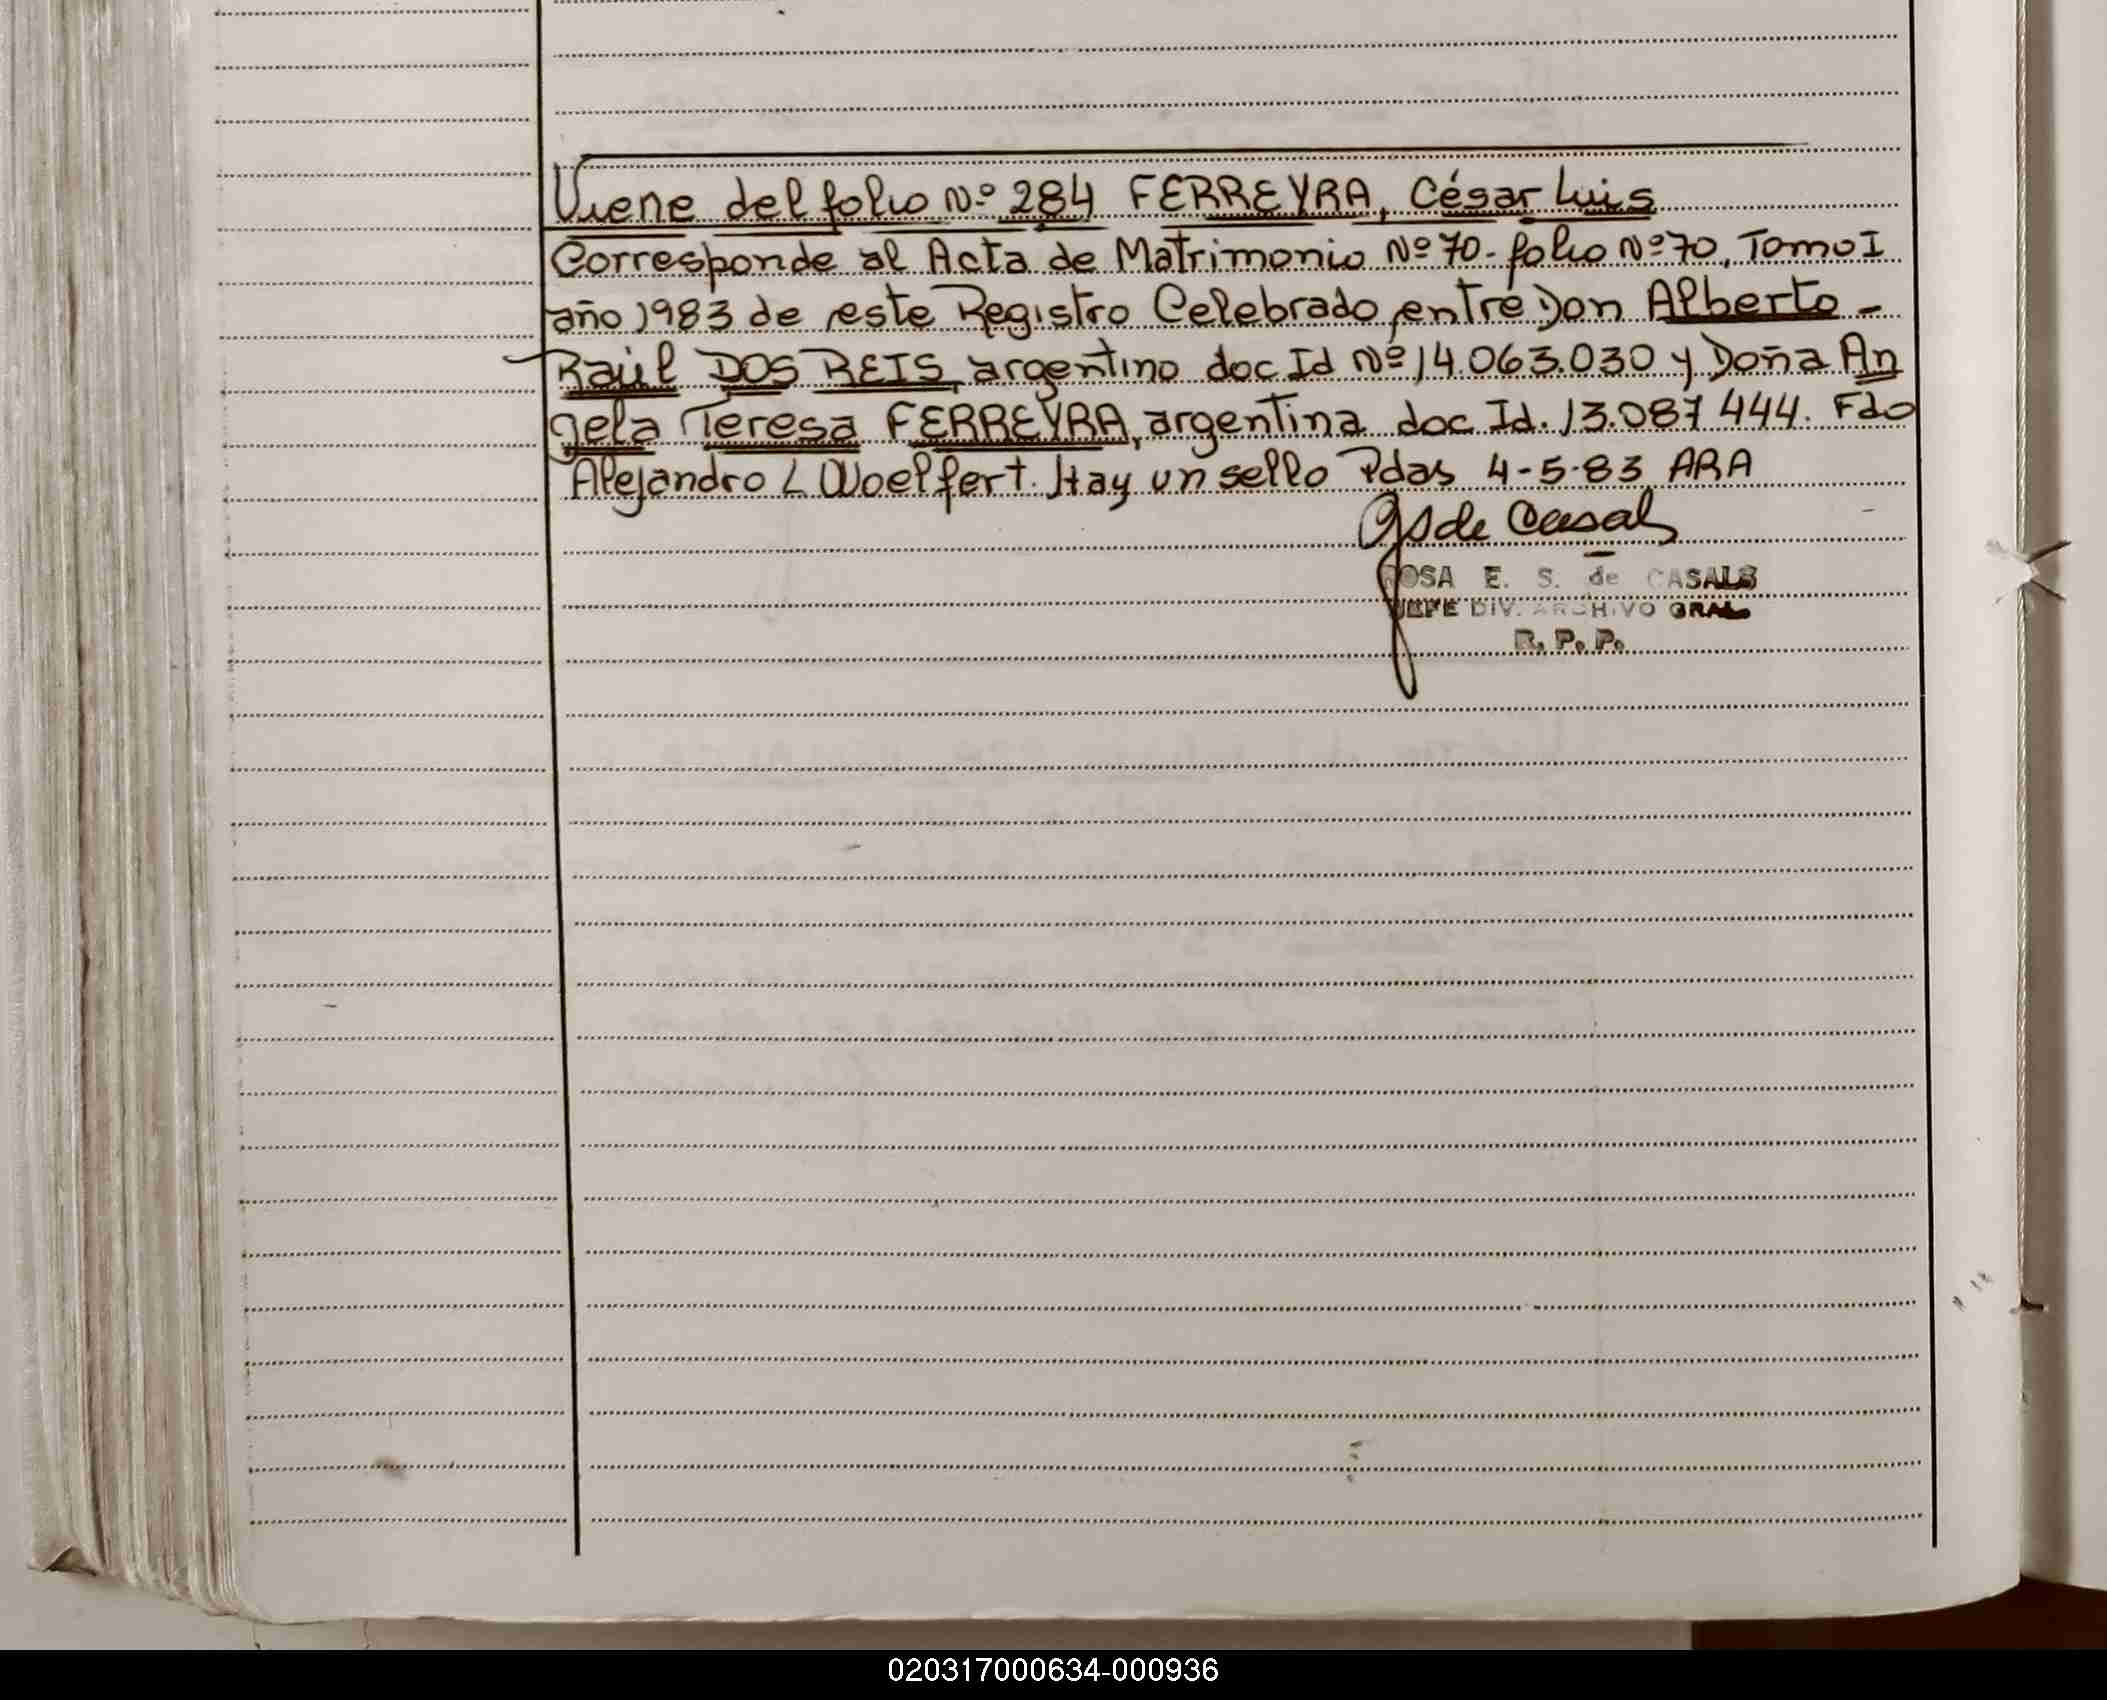 Viene del folio Nº 284 FERREYRA, César Luis
Corresponde al Acta de Matrimonio Nº 70- folio Nº 70, Tomo I
año 1983 de este Registro Celebrado entre Don Alberto -
Raúl DOS REIS, argentino doc Id Nº 14.063.030 y Doña An
gela Teresa FERREYRA, argentina doc Id. 13.087 444. Fdo
Alejandro L Woelfert. Hay un sello Pdas 4-5-83 ARA
de Casals
ROSA E. S. de CASALS
JEFE DIV. ARCHIVO GRAL
R. P. P.
020317000634-000936